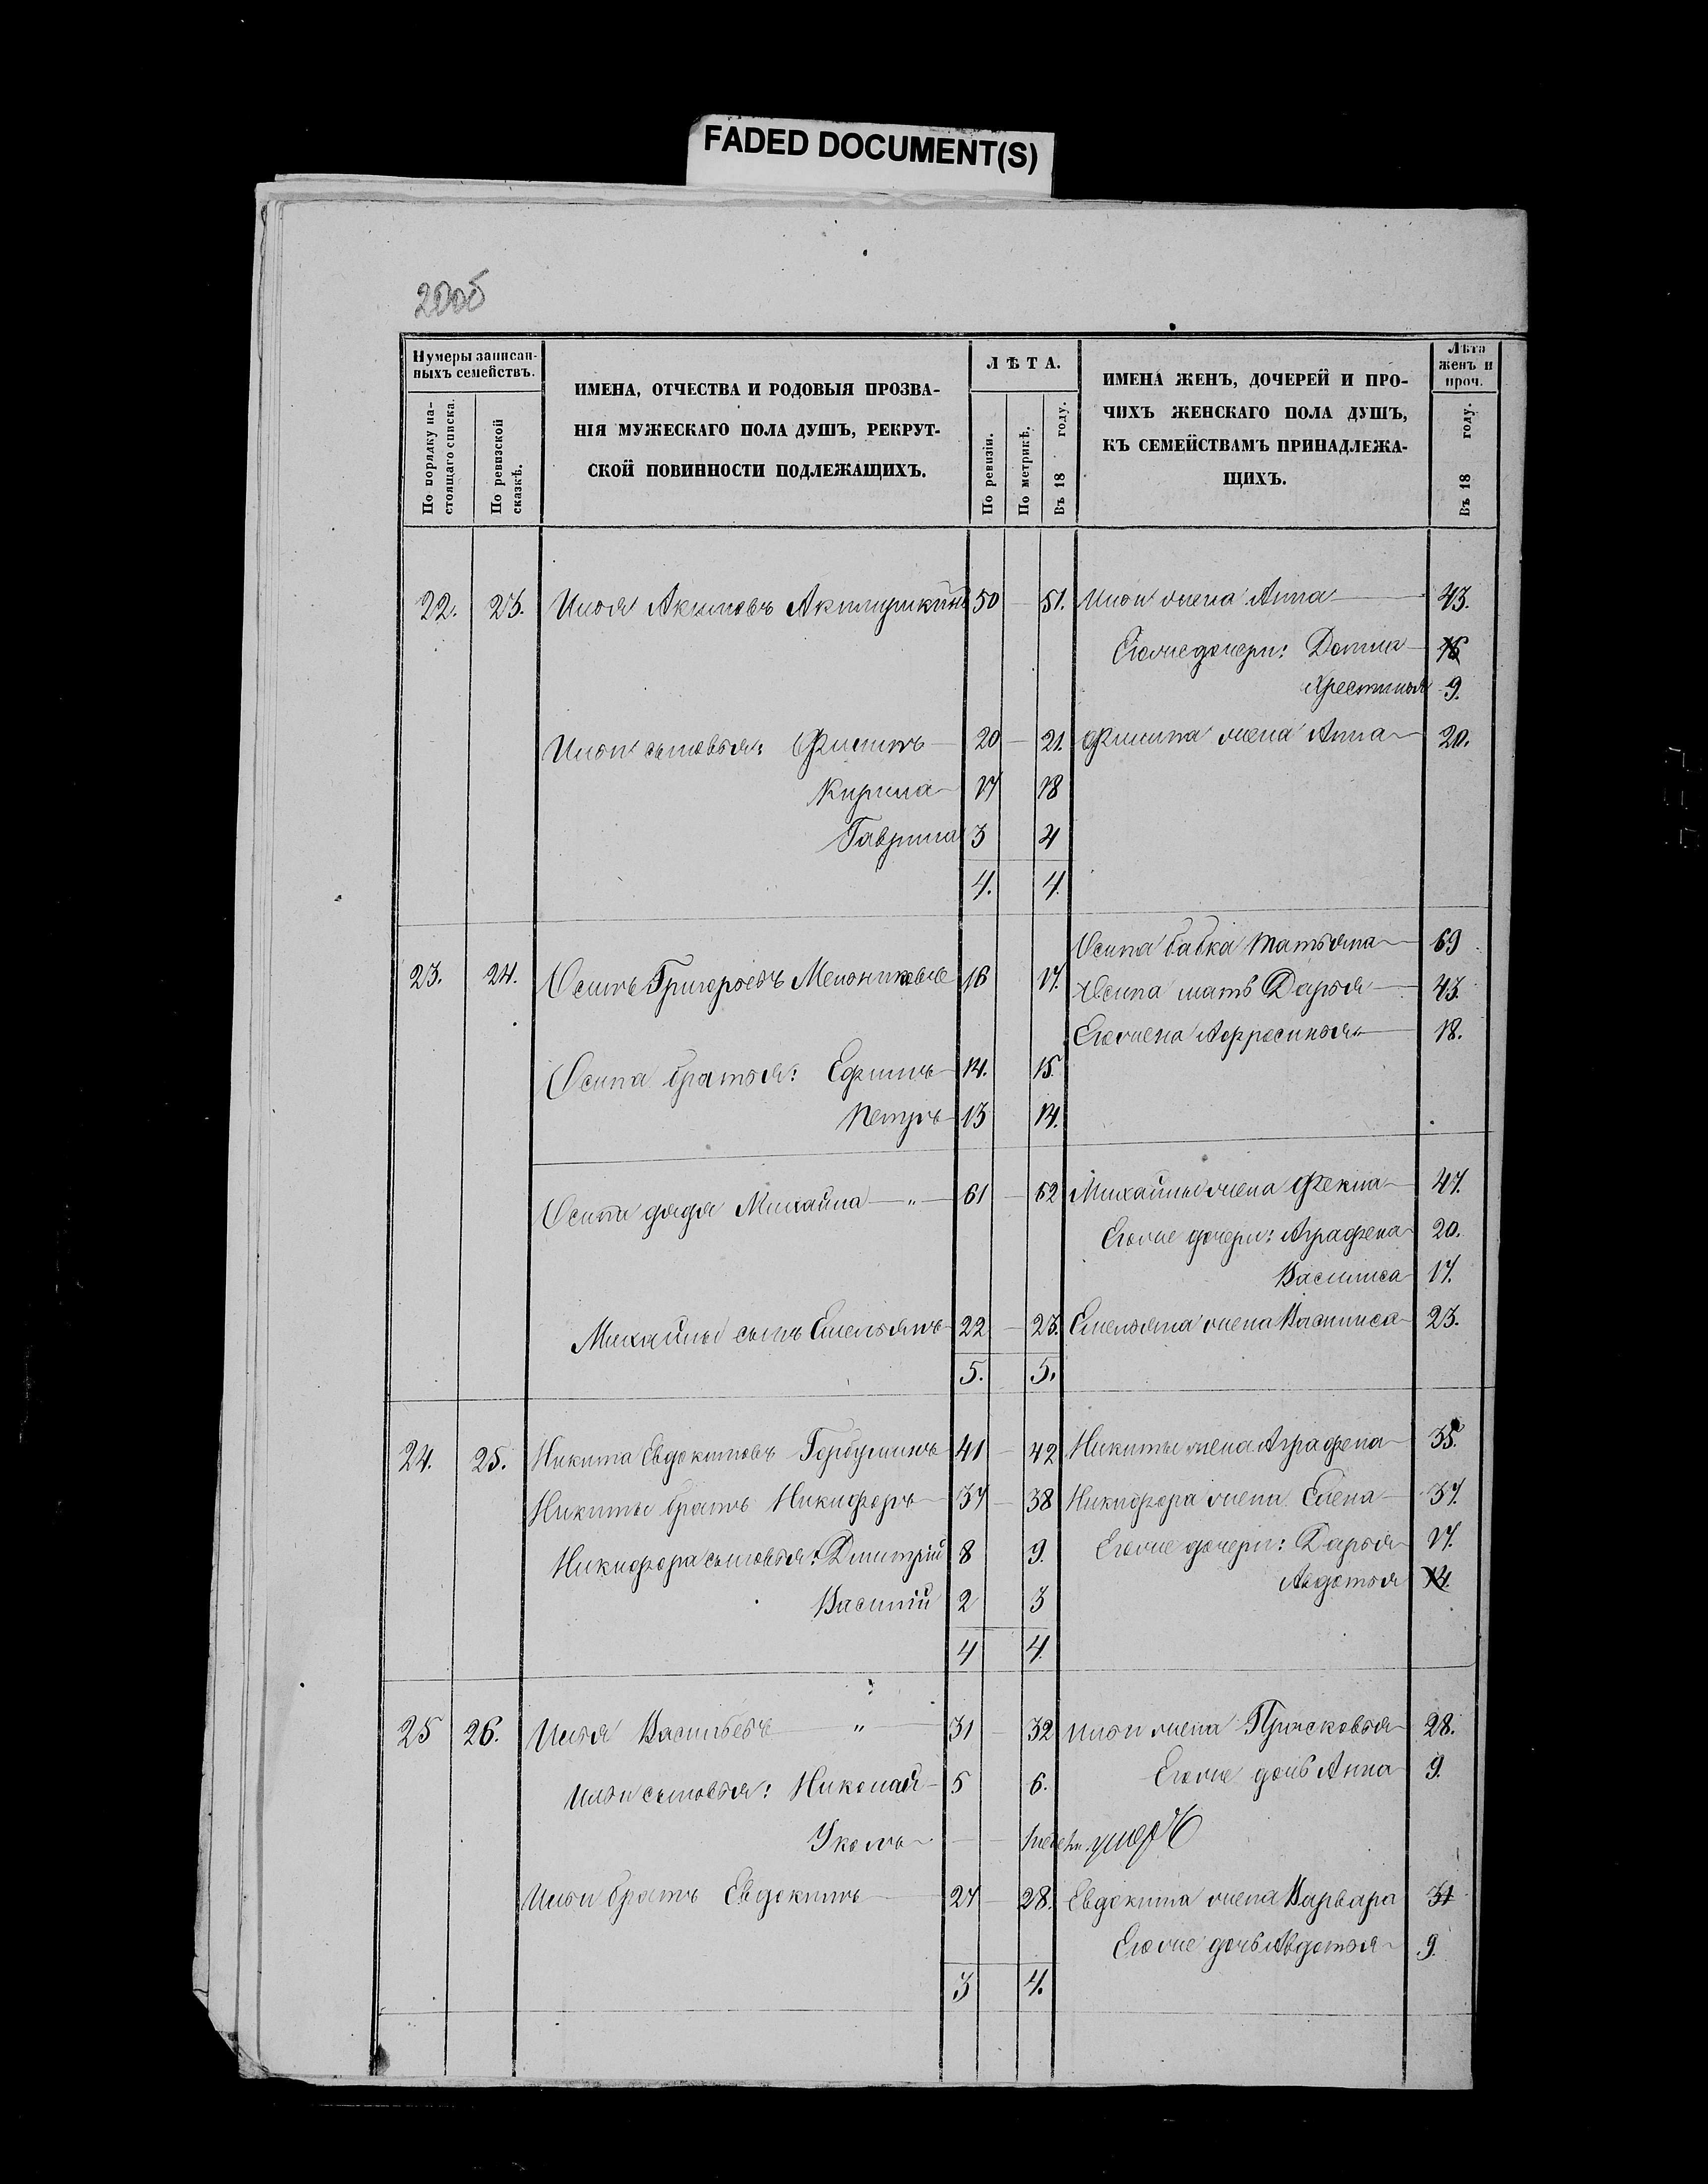 FADED DOCUMENT(S)
200б
Нумеры записан-
ныхъ семействъ.
По порядку на-
стоящаго списка.
По ревизской
сказкѣ.
ИМЕНА, ОТЧЕСТВА И РОДОВЫЯ ПРОЗВА-
НІЯ МУЖЕСКАГО ПОЛА ДУШЪ, РЕКРУТ-
СКОЙ ПОВИННОСТИ ПОДЛЕЖАЩИХЪ.
ЛѢТА.
По ревизіи.
По метрикѣ.
Въ 18 году.
ИМЕНА ЖЕНЪ, ДОЧЕРЕЙ И ПРО-
ЧИХЪ ЖЕНСКАГО ПОЛА ДУШЪ,
КЪ СЕМЕЙСТВАМЪ ПРИНАДЛЕЖА-
ЩИХЪ.
Лѣта
женъ и
проч.
Въ 18 году.
22. 23. Илья Акимовъ Акимушкинъ 50 — 51. Ильи жена Анна — 43.
Егоже дочери: Домна — 16
Хрестинья 9.
Ильи сыновья: Филипъ — 20 — 21. Филипа жена Анна — 20.
Кирила — 17 18
Гаврила 3 4
4. 4.
Осипа бабка Татьяна — 69
23. 24. Осипъ Григорьевъ 16 17. Осипа мать Дарья — 43.
Егожена Афросинья — 18.
Осипа братья: Ефимъ — 14. 15.
Петръ — 13 14.
Осипа дядя Михайла — " — 61 — 62 Михайлы жена Фекла — 47.
Егоже дочери: Аграфена 20.
Василиса 17.
Михайлы сынъ Емельянъ — 22 — 23. Емельяна жена Василиса 23.
5. 5.
24. 25. Никита Евдокимовъ 41 — 42 Никиты жена Аграфена — 35.
Никиты братъ Никифоръ — 37 — 38 Никифора жена Елена — 37.
Никифора сыновья: Дмитрій 8 9. Егоже дочери: Дарья 17.
Василій 2 3 Авдотья 14.
4 4.
25 26. Илья Васильевъ — " — 31 — 32 Ильи жена Прасковья — 28.
Ильи сыновья: Николай — 5 6. Егоже дочь Анна 9.
— —
Ильи братъ Евдокимъ — 27 — 28. Евдокима жена Варвара 31
Егоже дочь Авдотья — 9.
3 4.